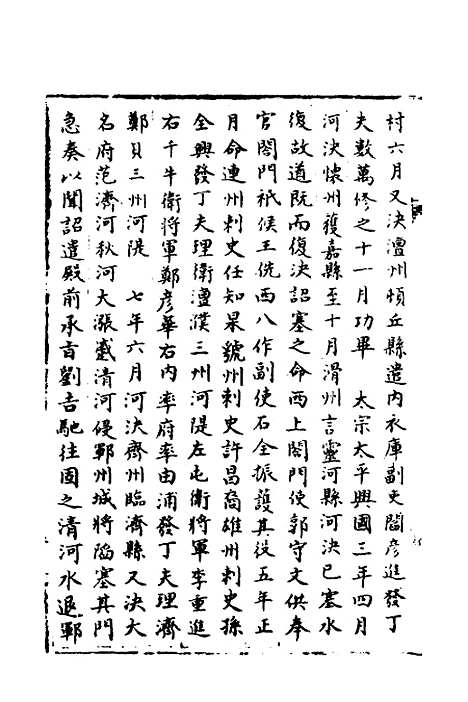 村六月又決澶州頓丘縣遣内衣庫副史閻彦進發丁
夫數萬修之十一月功畢　太宗太平興國三年四月
河決懷州獲嘉縣至十月滑州言靈河縣河決已塞水
復故道既而復決詔塞之命西上閤門使郭守文供奉
官閤門祇候王侁西八作副使石全振護其役五年正
月命連州刺史任知杲虢州刺史許昌裔雄州刺史孫
全興發丁夫理衛澶濮三州河隄左屯衛將軍李重進
右千牛衛將軍鄭彦華右内率府率由浦發丁夫理濟
鄭貝三州河隄　七年六月河決齊州臨濟縣又決大
名府范濟河秋河大漲蹙清河侵鄆州城將陷塞其門
急奏以聞詔遣殿前承旨劉吉馳往固之清河水退鄆